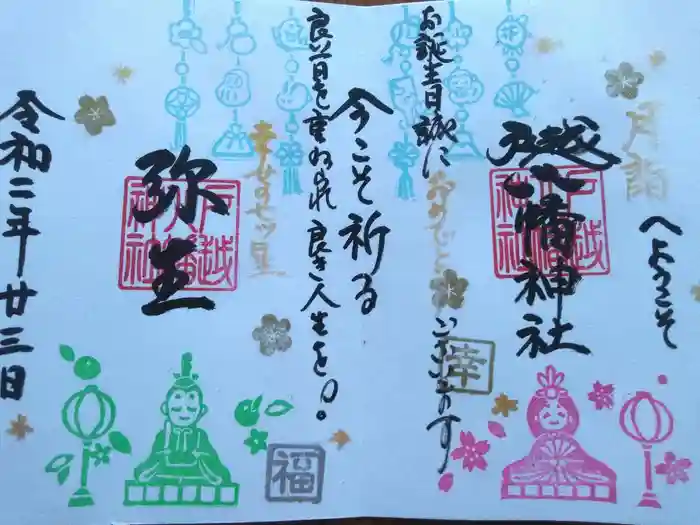 月詣
へようこそ
戸越八幡神社
戸越八幡神社
お誕生日誠に
おめでとう
ございます
幸
今こそ祈る
良い日を重ねられ良き人生を。
幸せの七ツ星
弥生
戸越八幡神社
福
令和二年廿三日